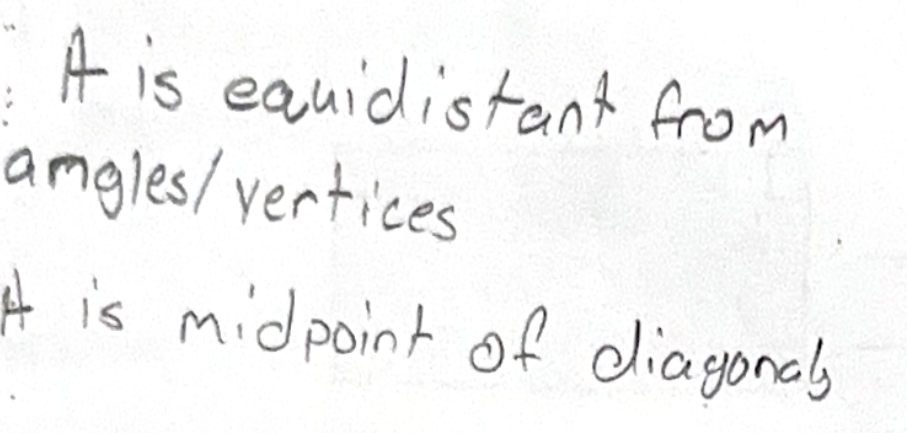 A is equidistant from
angles/vertices
A is midpoint of diagonals